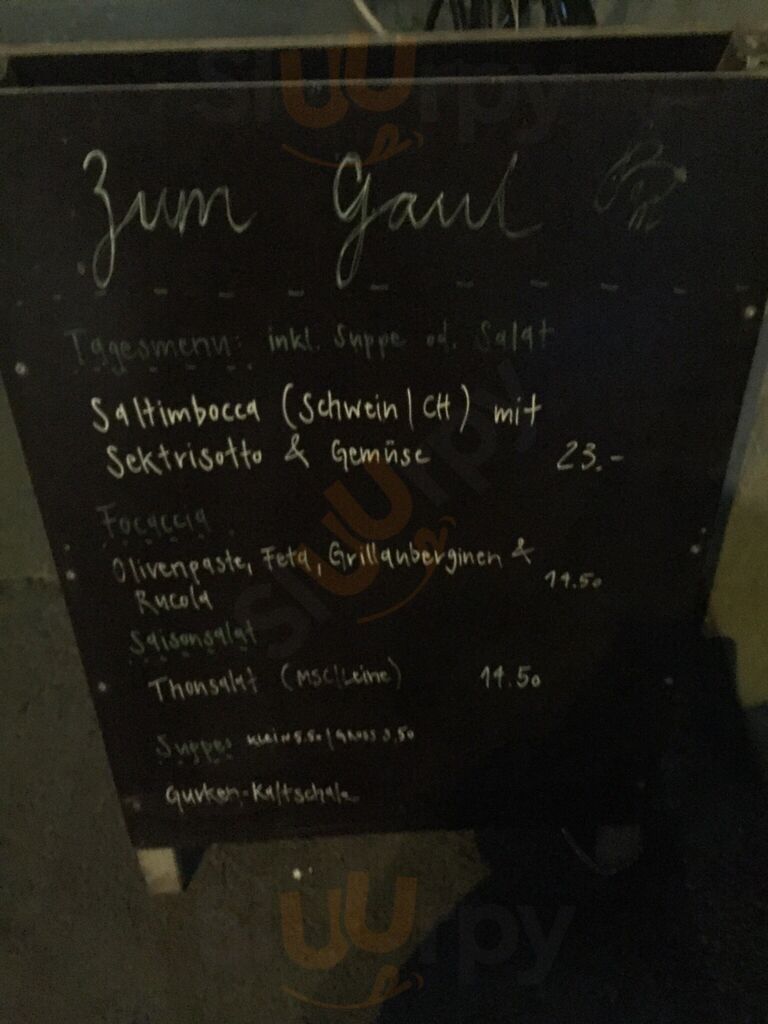 sluurpy
Zum Gaul
Tagesmenu: inkl. Suppe od. Salat
Saltimbocca (Schwein|CH) mit
Sektrisotto & Gemüse 23.-
sluurpy
Focaccia
Olivenpaste, Feta, Grillauberginen &
Rucola 14.50
Saisonsalat
Thonsalat (MSC|Leine) 14.50
Suppe: Klein 5.50 / Gross 8.50
Gurken-Kaltschale
sluurpy